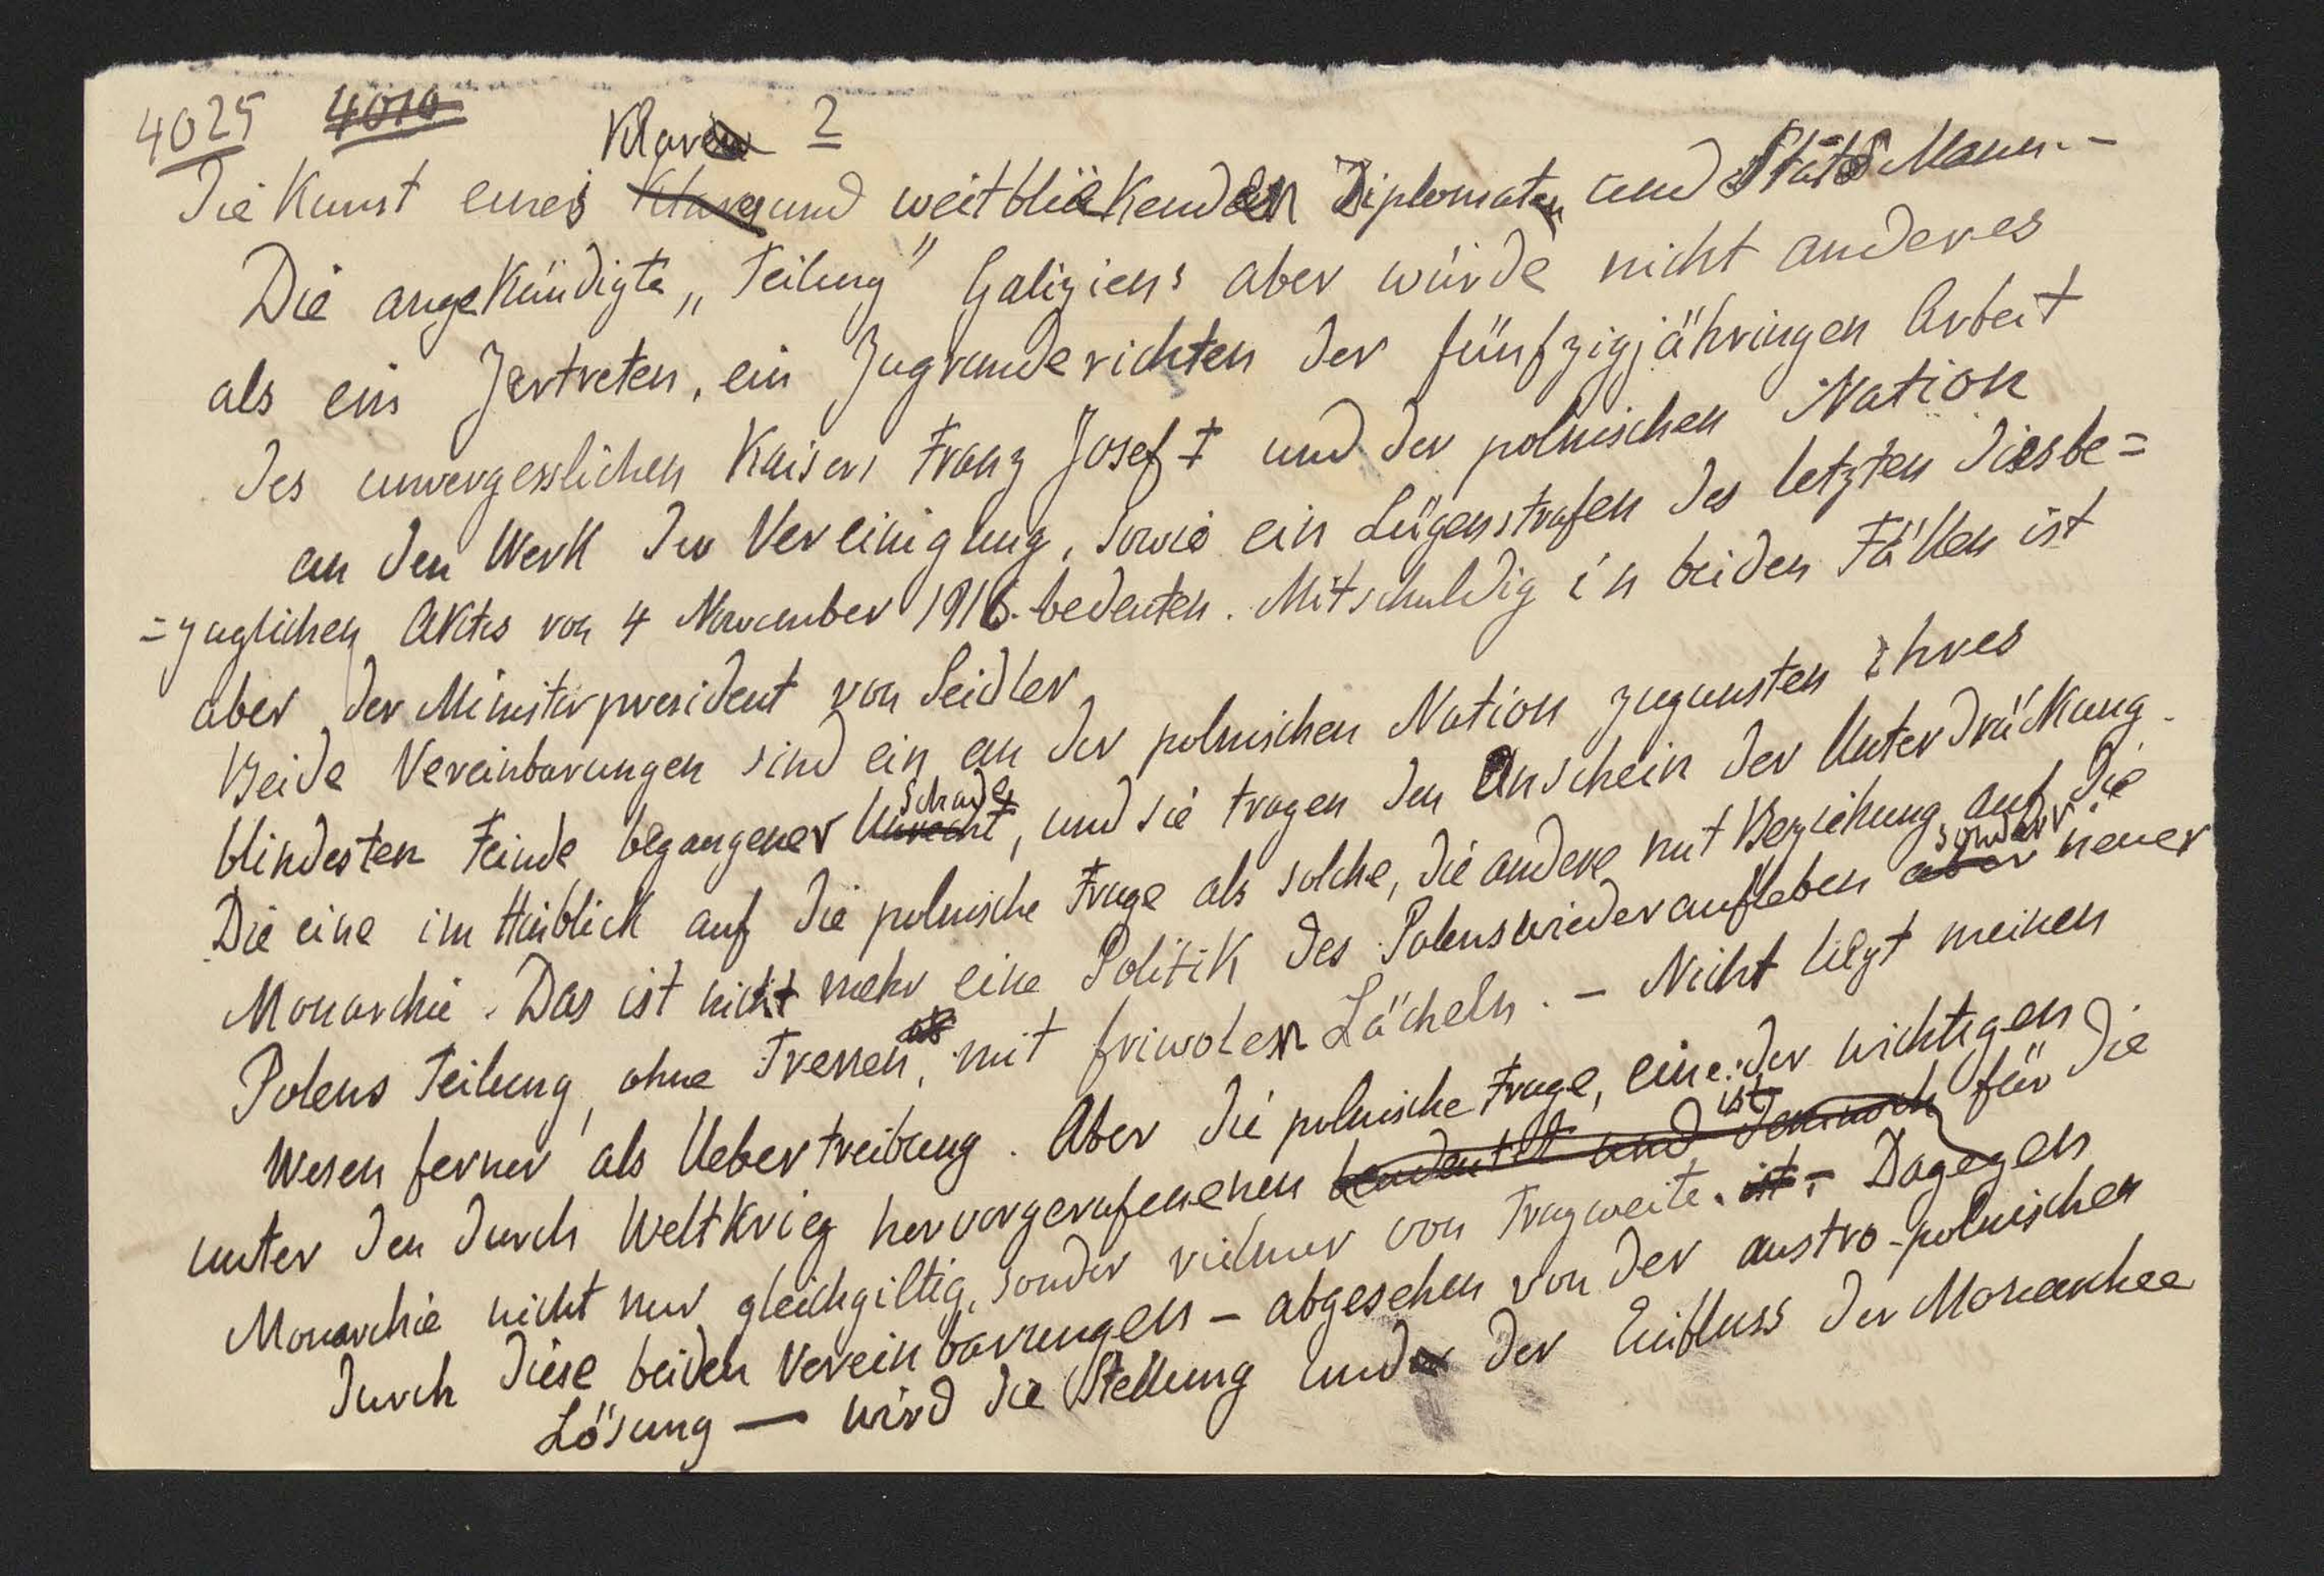 4025 4010
Klaren 2
Die Kunst eines Klares und weitblickenden Diplomaten und Stats Mann. -
Die angekündigte „Teilung" Galiziens aber würde nicht anderes
als ein Zertreten, ein Zugrunderichten der fünfzigjähringen Arbeit
des unvergesslichen Kaisers Franz Josef I und der polnischen Nation
an den Werk der Vereinigung, sowie ein Lügenstrafen des letzten diesbe=
=zuglichen Aktes von 4 November 1916. bedeuten. Mitschuldig in beiden Fällen ist
aber der Ministerpresident von Seidler
Beide Vereinbarungen sind ein an der polnischen Nation zugunsten ihres
blindesten Feinde begangener Unrecht, und sie tragen den Anschein der Unterdrückung.
Schade
Die eine im Hinblick auf die polnische Frage als solche, die andere mit Beziehung auf die
Monarchie. Das ist nicht mehr eine Politik des Polenswiederaufleben aber neuer
sondern
Polens Teilung, ohne Trenen, mit friwolen Lächeln. - Nicht liegt meinen
Wesen ferner als Uebertreibung. Aber die polnische Frage, eine der wichtigen
unter den durch Weltkrieg hervorgerufenenen bendeutet und dennoch für die
ist
Monarchie nicht nur gleichgiltig, sonder vielmer von Tragweite. ist. - Dagegen
durch diese beiden Vereinbarungen - abgesehen von der austro-polnischen
Lösung — wird die Stellung und der Einfluss der Monarchee